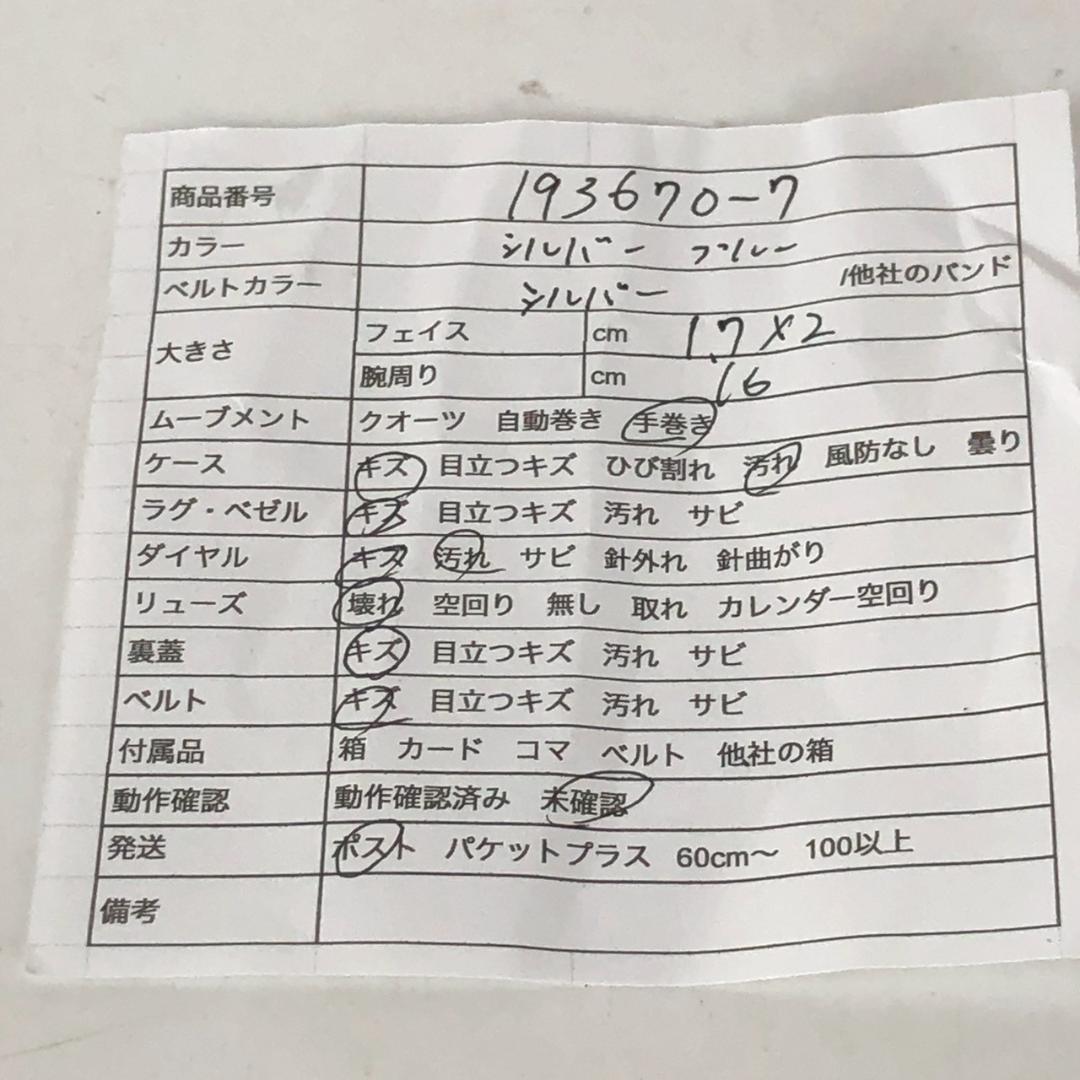 商品番号 193670-7
カラー シルバー ブルー
ベルトカラー シルバー /他社のバンド
大きさ フェイス cm 1.7×2
腕周り cm 16
ムーブメント クオーツ 自動巻き 手巻き
ケース キズ 目立つキズ ひび割れ 汚れ 風防なし 曇り
ラグ・ベゼル キズ 目立つキズ 汚れ サビ
ダイヤル キズ 汚れ サビ 針外れ 針曲がり
リューズ 壊れ 空回り 無し 取れ カレンダー空回り
裏蓋 キズ 目立つキズ 汚れ サビ
ベルト キズ 目立つキズ 汚れ サビ
付属品 箱 カード コマ ベルト 他社の箱
動作確認 動作確認済み 未確認
発送 ポスト パケットプラス 60cm〜 100以上
備考